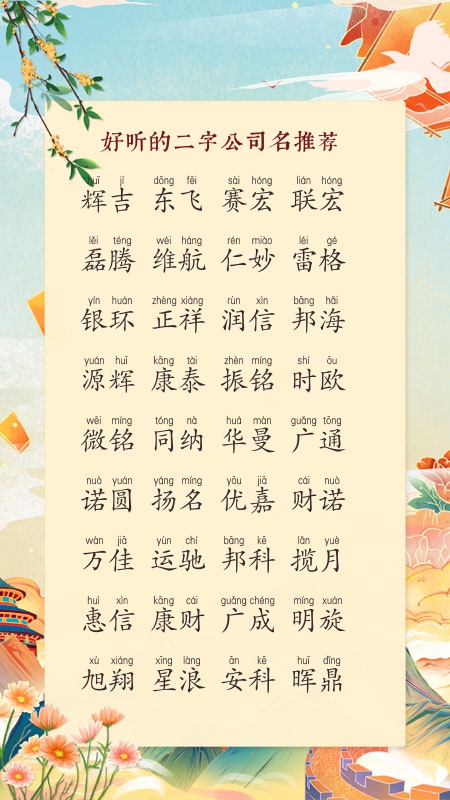 好听的二字公司名推荐
huī jí dōng fēi sài hóng lián hóng
辉吉 东飞 赛宏 联宏
lěi téng wéi háng rén miào léi gé
磊腾 维航 仁妙 雷格
yín huán zhèng xiáng rùn xìn bāng hǎi
银环 正祥 润信 邦海
yuán huī kāng tài zhèn míng shí ōu
源辉 康泰 振铭 时欧
wēi míng tóng nà huá màn guǎng tōng
微铭 同纳 华曼 广通
nuò yuán yáng míng yōu jiā cái nuò
诺圆 扬名 优嘉 财诺
wàn jiā yùn chí bāng kē lǎn yuè
万佳 运驰 邦科 揽月
huì xìn kāng cái guǎng chéng míng xuán
惠信 康财 广成 明旋
xù xiáng xīng làng ān kē huī dǐng
旭翔 星浪 安科 晖鼎